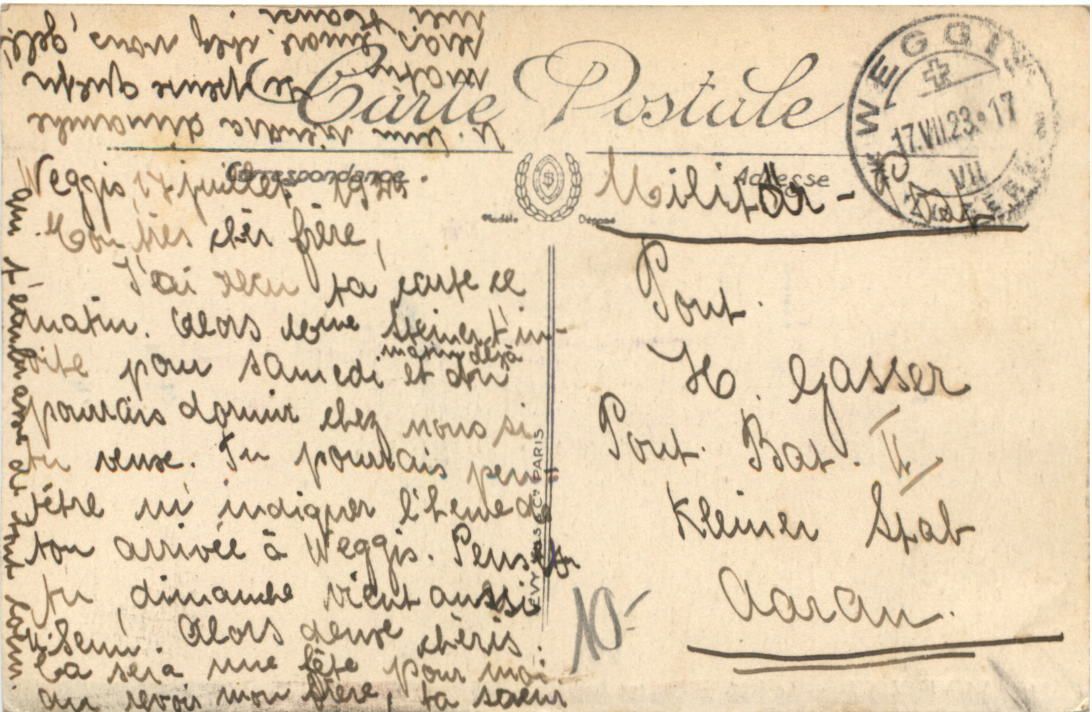 Carte Postale
Correspondance.
Adresse
Modèle Déposé
WEGGIS
17.VII.23.17
Weggis 17 juillet 1923
Mon très chèr frère,
J'ai recu ta carte ce
matin. Alors Steiner t'in-
vite pour samedi et
matin déjà
pourrais dormir chez nous si
tu veux. Tu pourrais peu
têtre m'indiquer l'heure de
ton arrivée à Weggis. Penses
tu, dimanche vient aussi
Alors deux chéris
ça sera une fête pour moi.
au revoir mon frère, ta sœur
qui t'embrasse de tout cœur
viendra dimanche
matin
PARIS
Militär-
Pont.
H. Gasser
Pont. Bat. II
Kleiner Stab
Aarau.
10.-